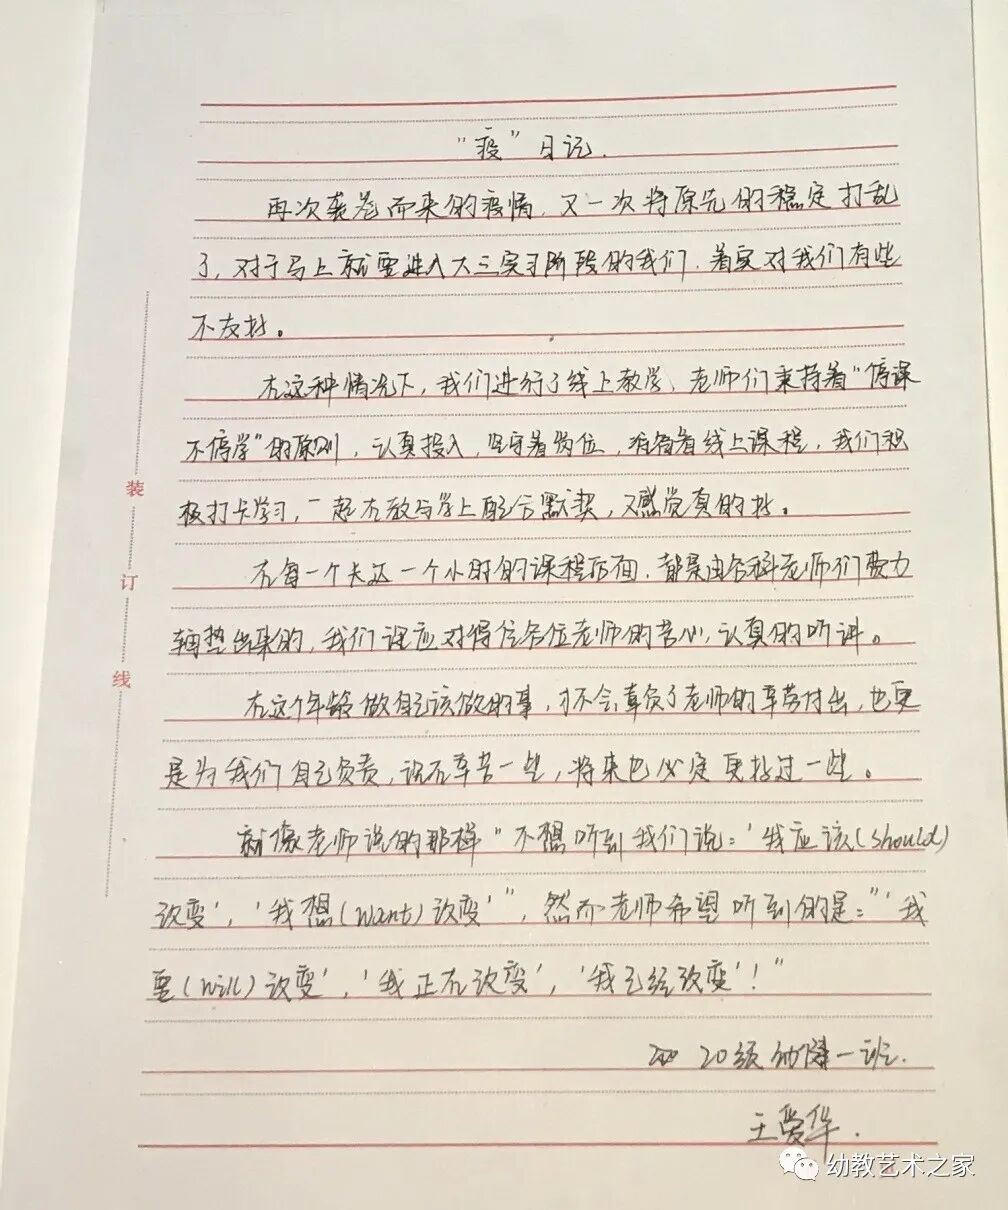 “疫”日记.
再次袭卷而来的疫情，又一次将原先的稳定打乱
了，对于马上就要进入大三实习阶段的我们，着实对我们有些
不友好。
在这种情况下，我们进行了线上教学，老师们秉持着“停课
不停学”的原则，认真投入，坚守着岗位，准备着线上课程，我们积
极打卡学习，一起在教与学上配合默契，又感觉真的好。
在每一个长达一个小时的课程后面，都是由各科老师们费力
铺垫出来的，我们理应对得住各位老师的苦心，认真的听讲。
在这个年龄做自己该做的事，才不会辜负了老师的辛劳付出，也更
是为我们自己负责，现在辛苦一些，将来也必定更好过一些。
就像老师说的那样“不想听到我们说：‘我应该(should)
改变’，‘我想(want)改变’”，然而老师希望听到的是：“‘我
要(will)改变’，‘我正在改变’，‘我已经改变’！”
20级幼健一班.
王爱华.
装
订
线
幼教艺术之家